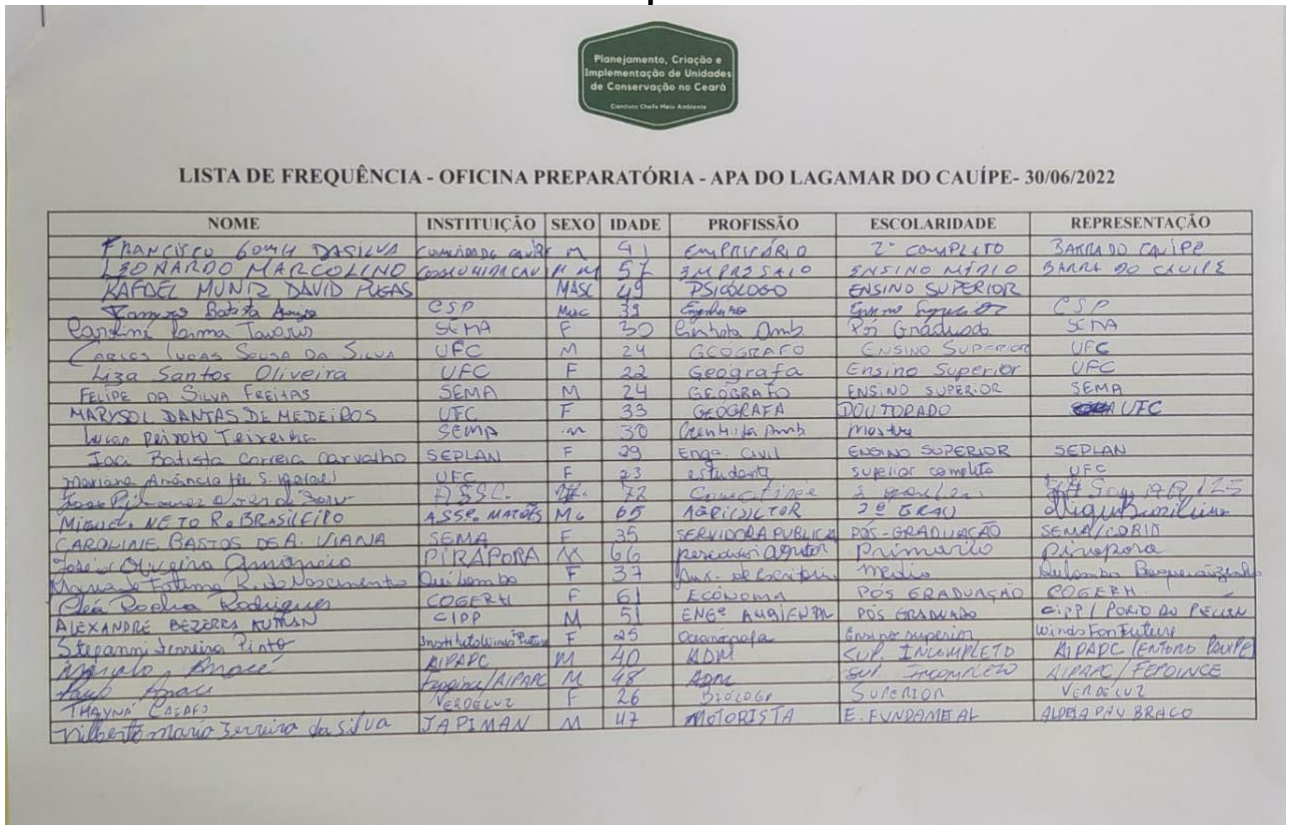 Planejamento, Criação e
Implementação de Unidades
de Conservação no Ceará
Cientista Chefe Meio Ambiente
LISTA DE FREQUÊNCIA - OFICINA PREPARATÓRIA - APA DO LAGAMAR DO CAUÍPE- 30/06/2022
NOME INSTITUIÇÃO SEXO IDADE PROFISSÃO ESCOLARIDADE REPRESENTAÇÃO
FRANCISCO DASILVA M 41 EMPRISÁRIO 2° COMPLETO BARRA DO CAUÍPE
LEONARDO MARCOLINO M 57 ENSINO MÉDIO BARRA DO CAUIPE
RAFAEL MUNIZ DAVID MASC 49 PSICÓLOGO ENSINO SUPERIOR
Batista CSP Masc 39 Engenheiro Ensino Superior CSP
Tavares SEMA F 30 Cientista Amb Pós Graduada SEMA
CARLOS LUCAS SOUSA DA SILVA UFC M 24 GEOGRAFO ENSINO SUPERIOR UFC
Liza Santos Oliveira UFC F 22 Geógrafa Ensino Superior UFC
FELIPE DA SILVA FREITAS SEMA M 24 GEÓGRAFO ENSINO SUPERIOR SEMA
MARYSOL DANTAS DE MEDEIROS UFC F 33 GEÓGRAFA DOUTORADO UFC
Lucas Peixoto Teixeira SEMA M 30 Cientista Amb Mestre
Iaci Batista Correia Carvalho SEPLAN F 29 Enga. Civil ENSINO SUPERIOR SEPLAN
Mariana Amâncio de S. UFC F 23 estudante superior completo UFC
72
MIGUEL NETO R. BRASILEIRO ASSE. MATÕES 65 AGRICULTOR 2º GRAU
CAROLINE BASTOS DE A. VIANA SEMA F 35 SERVIDORA PUBLICA PÓS-GRADUAÇÃO SEMA/COBIO
José Oliveira PIRAPORA M 66 Primario Pirapora
Maria de Fatima R. do Nascimento Quilombo F 37 Aux. de Escritório Médio
Cléa Rocha Rodrigues COGERH F 61 ECONOMA PÓS GRADUAÇÃO COGERH
ALEXANDRE BEZERRA CIPP M 51 ENGº AMBIENTAL PÓS GRADUADO CIPP / PORTO DO PECÉM
Stepanni Ferreira Pinto F 25 Oceanógrafa Ensino superior Winds For Future
Anacé AIPAPC M 40 ADM SUP. INCOMPLETO AIPAPC (ENTORNO CAUIPE)
Paulo Anacé M 48 Adm Sup. Incompleto AIPAPC / FEPOINCE
THAYNÁ VERDELUZ F 26 BIÓLOGA SUPERIOR VERDELUZ
Nilberto Mario Ferreira da Silva JAPIMAN M 47 MOTORISTA E. FUNDAMETAL ALDEIA PAU BRACO